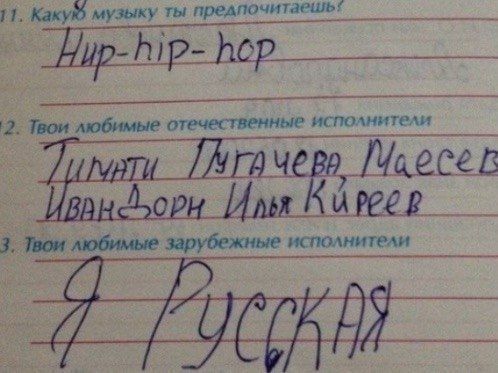 11. Какую музыку ты предпочитаешь?
Hup-hip-hop
12. Твои любимые отечественные исполнители
Тимати Пугачева Маесев
Иван Дорн Илья Киреев
3. Твои любимые зарубежные исполнители
Я Русская